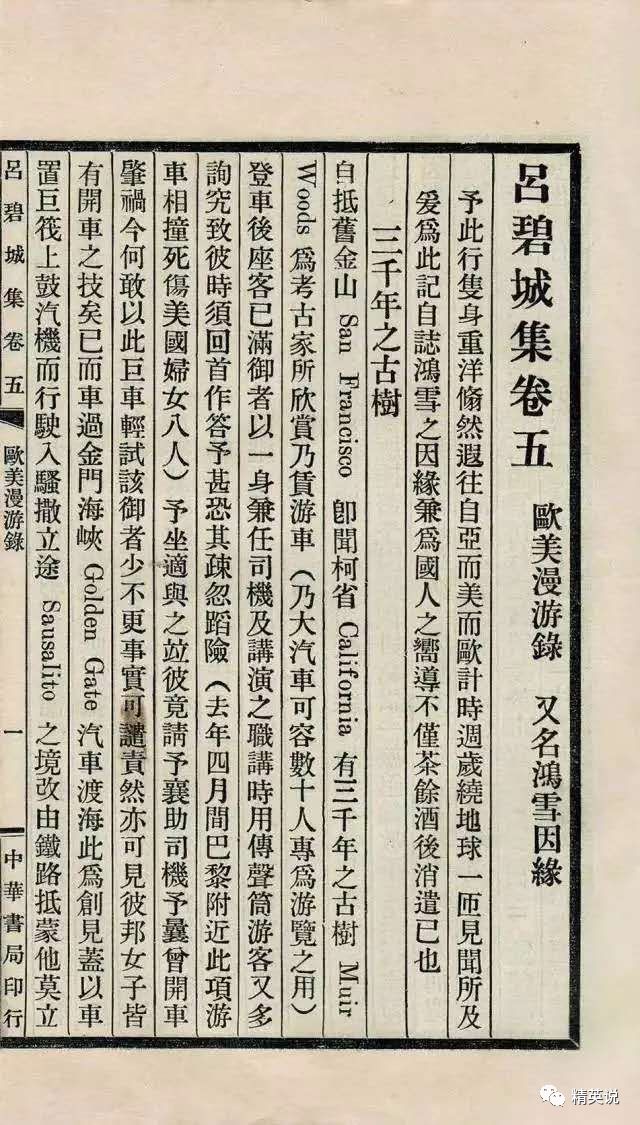 呂碧城集卷五 歐美漫游錄 又名鴻雪因緣
予此行隻身重洋翛然遐往自亞而美而歐計時週歲繞地球一匝見聞所及
爰爲此記自誌鴻雪之因緣兼爲國人之嚮導不僅茶餘酒後消遣已也
三千年之古樹
自抵舊金山 San Francisco 卽聞柯省 California 有三千年之古樹 Muir
Woods 爲考古家所欣賞乃賃游車（乃大汽車可容數十人專爲游覽之用）
登車後座客已滿御者以一身兼任司機及講演之職講時用傳聲筒游客又多
詢究致彼時須回首作答予甚恐其疎忽蹈險（去年四月間巴黎附近此項游
車相撞死傷美國婦女八人）予坐適與之竝彼竟請予襄助司機予曩曾開車
肇禍今何敢以此巨車輕試該御者少不更事實可譴責然亦可見彼邦女子皆
有開車之技矣已而車過金門海峽 Golden Gate 汽車渡海此爲創見蓋以車
置巨筏上鼓汽機而行駛入騷撒立途 Sausalito 之境改由鐵路抵蒙他莫立
呂碧城集卷五 歐美漫游錄 一 中華書局印行
精英说